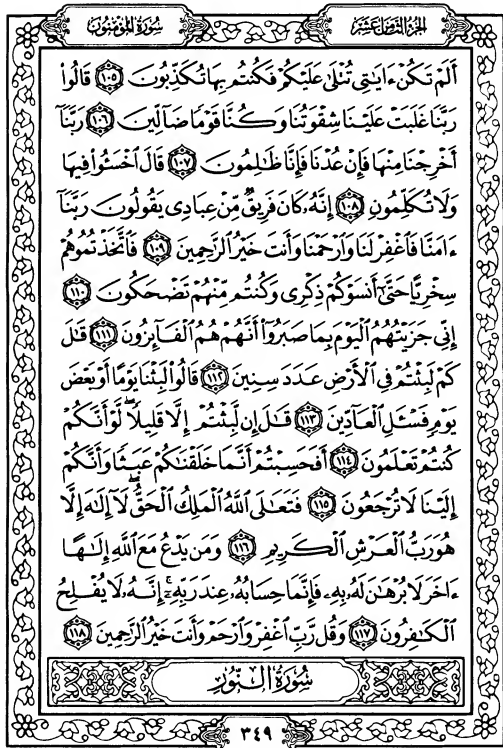 الجزء الثامن عشر
سورة المؤمنون
ألم تكن ءايتى تتلى عليكم فكنتم بها تكذبون ١٠٥ قالوا
ربنا غلبت علينا شقوتنا وكنا قوما ضآلين ١٠٦ ربنآ
أخرجنا منها فإن عدنا فإنا ظلمون ١٠٧ قال اخسـوا فيها
ولا تكلمون ١٠٨ إنه كان فريق من عبادى يقولون ربنآ
ءامنا فاغفر لنا وارحمنا وأنت خير الرحمين ١٠٩ فاتخذتموهم
سخريا حتى أنسوكم ذكرى وكنتم منهم تضحكون ١١٠
إنى جزيتهم اليوم بما صبروا أنهم هم الفآئزون ١١١ قل
كم لبثتم فى الأرض عدد سنين ١١٢ قالوا لبثنا يوما أو بعض
يوم فسـل العآدين ١١٣ قل إن لبثتم إلا قليلا لو أنكم
كنتم تعلمون ١١٤ أفحسبتم أنما خلقنكم عبثا وأنكم
إلينا لا ترجعون ١١٥ فتعلى الله الملك الحق لآ إله إلا
هو رب العرش الكريم ١١٦ ومن يدع مع الله إلها
ءاخر لا برهن له به فإنما حسابه عند ربه إنه لا يفلح
الكفرون ١١٧ وقل رب اغفر وارحم وأنت خير الرحمين ١١٨
سورة النور
٣٤٩